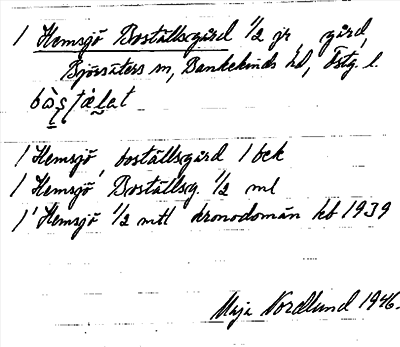 1 Hemsjö Boställsgård 1/2 jr, gård,
Björsäters sn, Bankekinds hd, Östg. l.
bòstǽlat
1 Hemsjö, boställsgård 1 bck
1 Hemsjö Boställsg. 1/2 ml
1' Hemsjö 1/2 mtl kronodomän hb 1939
Maja Nordlund 1946.